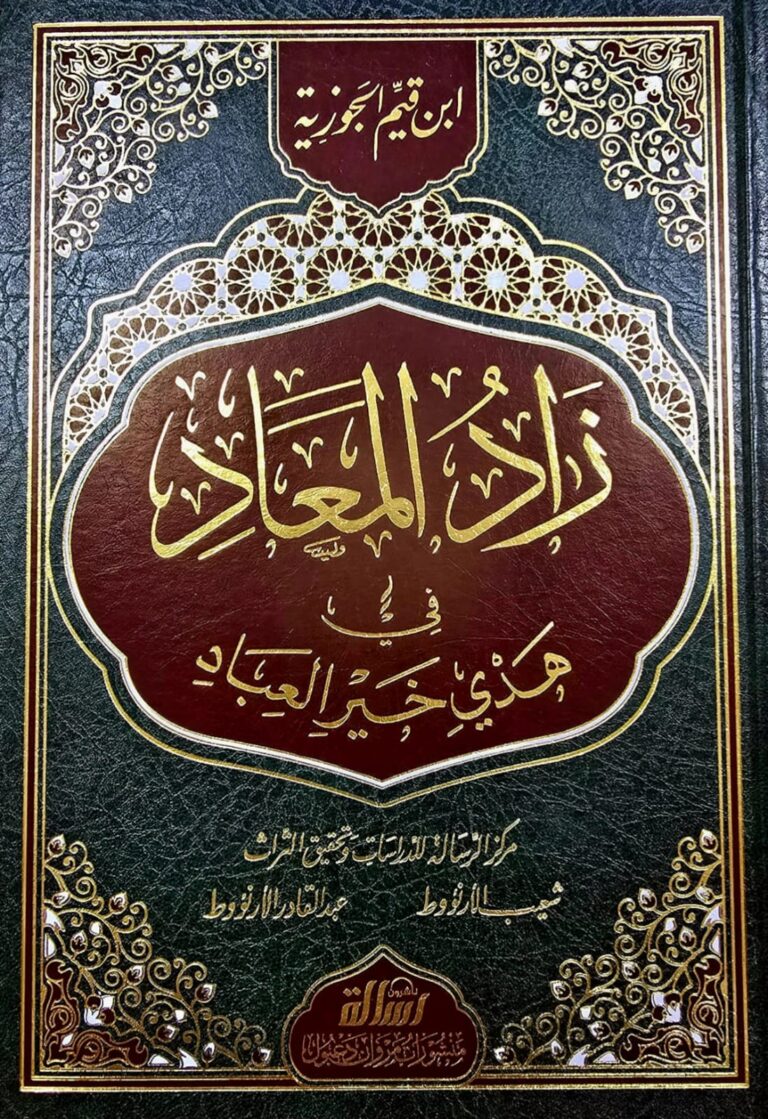 ابن قيّم الجَوزِية
زَادُ المَعَادِ
في
هَدْيِ خَيْرِ العِبَادِ
مركز الرسالة للدراسات وتحقيق التراث
شعيب الأرنؤوط عبد القادر الأرنؤوط
ناشرون
رسالة
منشورات مروان دعبول